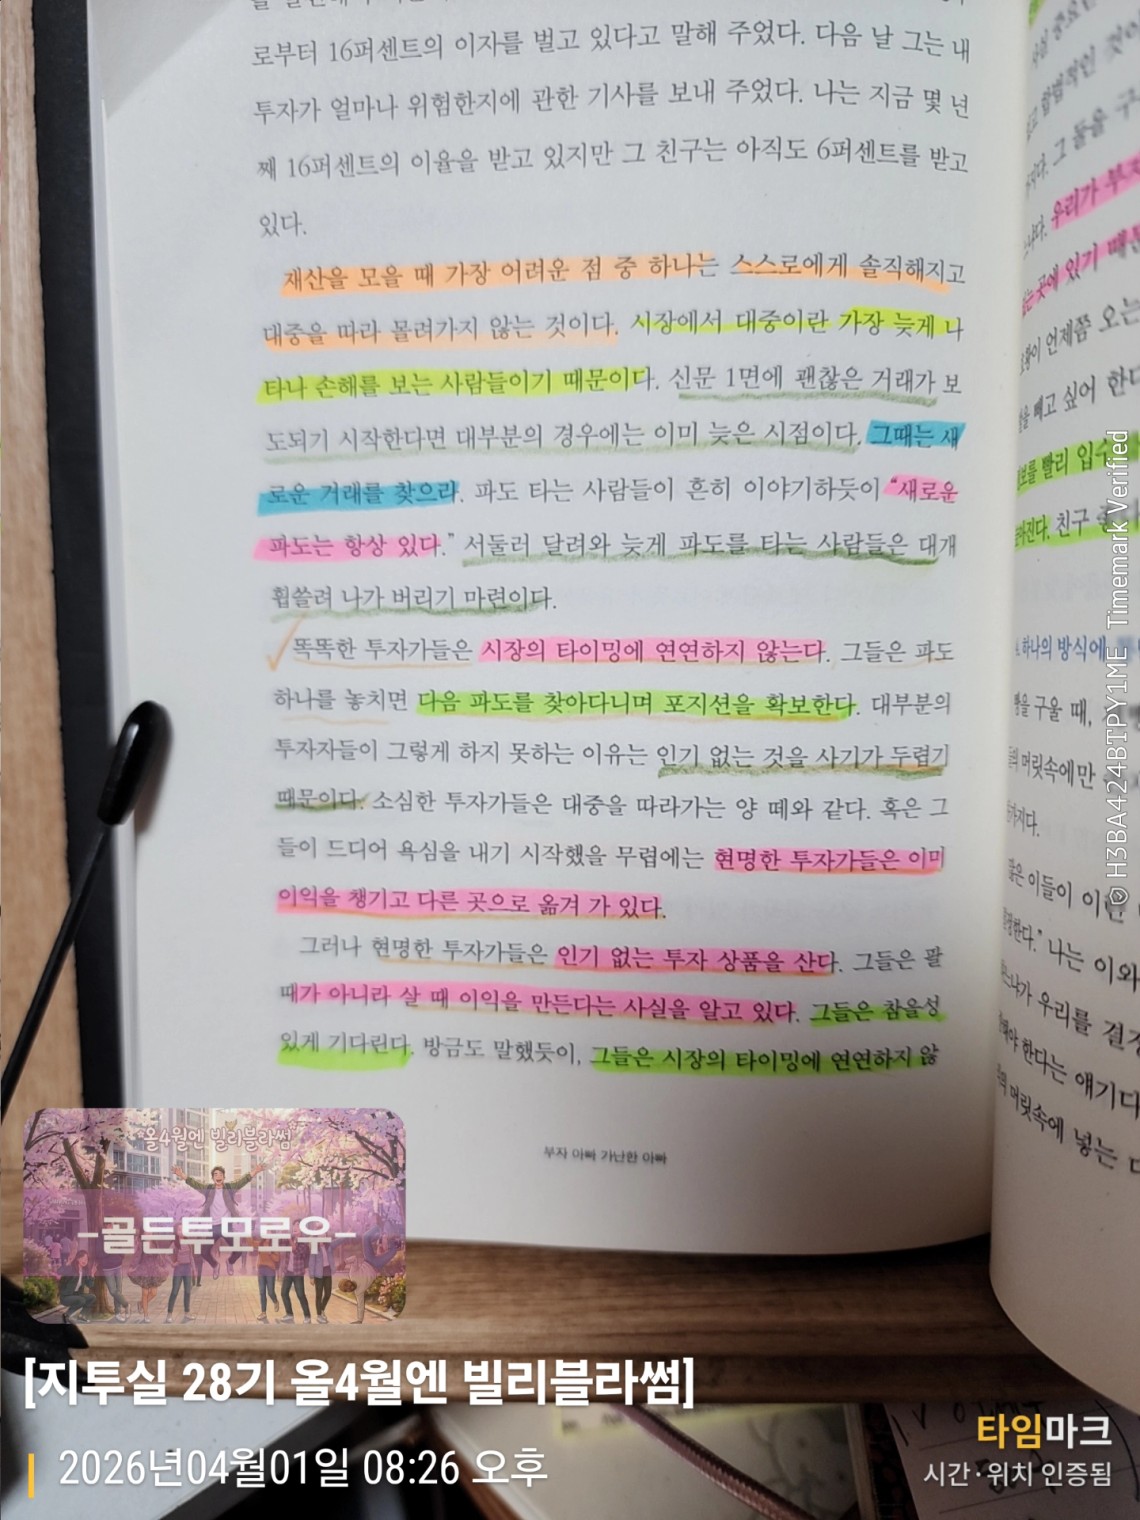 로부터 16퍼센트의 이자를 벌고 있다고 말해 주었다. 다음 날 그는 내
투자가 얼마나 위험한지에 관한 기사를 보내 주었다. 나는 지금 몇 년
째 16퍼센트의 이율을 받고 있지만 그 친구는 아직도 6퍼센트를 받고
있다.
재산을 모을 때 가장 어려운 점 중 하나는 스스로에게 솔직해지고
대중을 따라 몰려가지 않는 것이다. 시장에서 대중이란 가장 늦게 나
타나 손해를 보는 사람들이기 때문이다. 신문 1면에 괜찮은 거래가 보
도되기 시작한다면 대부분의 경우에는 이미 늦은 시점이다. 그때는 새
로운 거래를 찾으라. 파도 타는 사람들이 흔히 이야기하듯이 “새로운
파도는 항상 있다.” 서둘러 달려와 늦게 파도를 타는 사람들은 대개
휩쓸려 나가 버리기 마련이다.
똑똑한 투자가들은 시장의 타이밍에 연연하지 않는다. 그들은 파도
하나를 놓치면 다음 파도를 찾아다니며 포지션을 확보한다. 대부분의
투자자들이 그렇게 하지 못하는 이유는 인기 없는 것을 사기가 두렵기
때문이다. 소심한 투자가들은 대중을 따라가는 양 떼와 같다. 혹은 그
들이 드디어 욕심을 내기 시작했을 무렵에는 현명한 투자가들은 이미
이익을 챙기고 다른 곳으로 옮겨 가 있다.
그러나 현명한 투자가들은 인기 없는 투자 상품을 산다. 그들은 팔
때가 아니라 살 때 이익을 만든다는 사실을 알고 있다. 그들은 참을성
있게 기다린다. 방금도 말했듯이, 그들은 시장의 타이밍에 연연하지 않
부자 아빠 가난한 아빠
우리가 부
곳에 있기 때문
언제쯤 오는
빼고 싶어 한다
빨리 입수
친구
하나의 방식에
구울 때,
머릿속에만
이들이 이런
나는 이와
우리를 결정
한다는 얘기다
머릿속에 넣는
올4월엔 빌리블라썸
-골든투모로우-
[지투실 28기 올4월엔 빌리블라썸]
2026년04월01일 08:26 오후
타임마크
시간·위치 인증됨
H3BA424BTPY1ME Timemark Verified